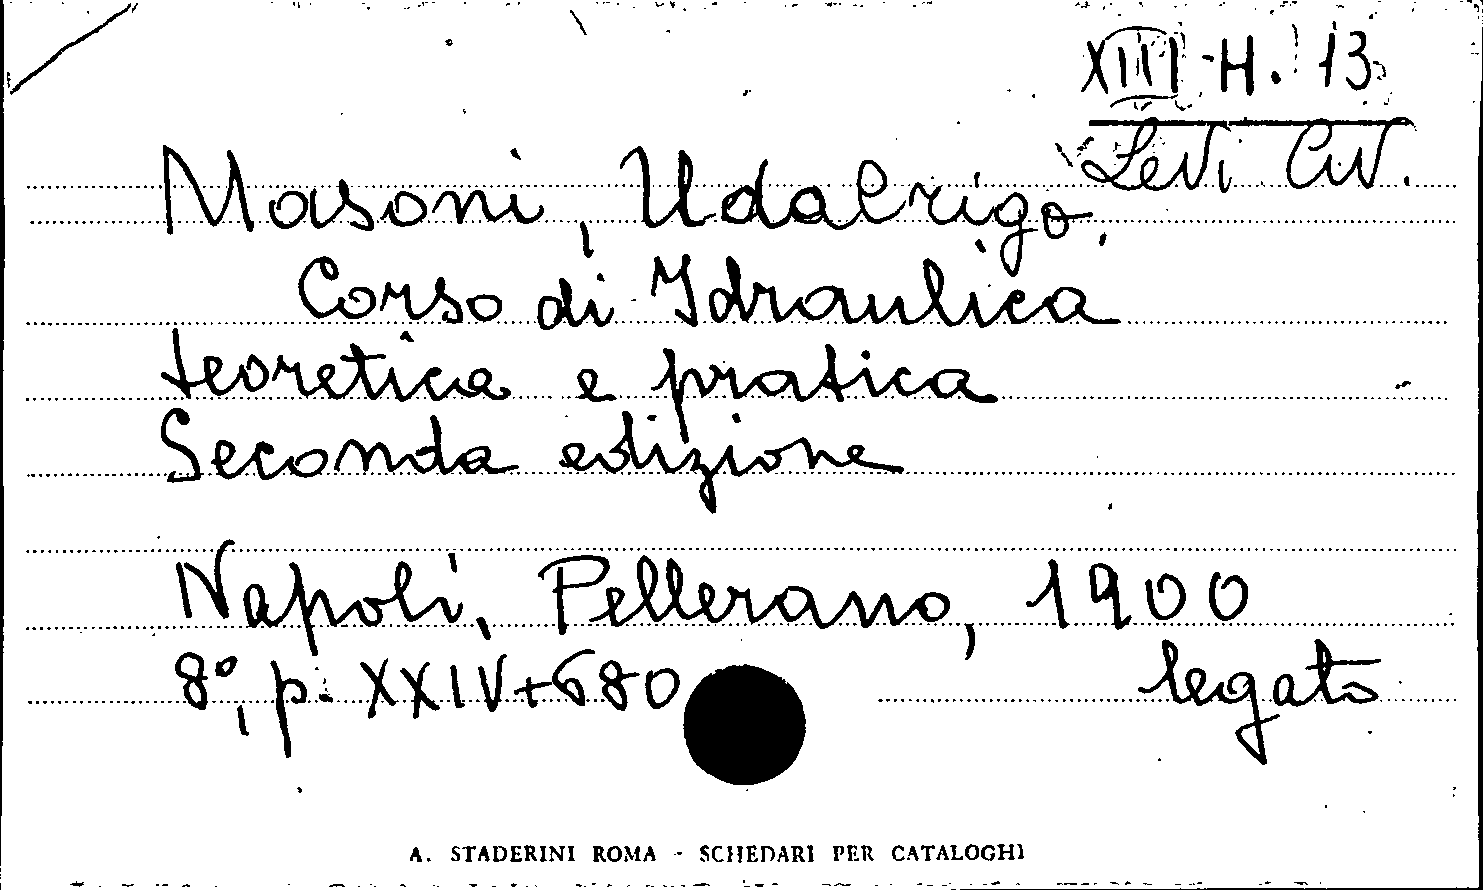 XIII-H. 13
Levi Civ.
Masoni, Udalrigo.
Corso di Idraulica
teoretica e pratica
Seconda edizione
Napoli, Pellerano, 1900
8°, p. XXIV+680
legato
A. STADERINI ROMA - SCHEDARI PER CATALOGHI